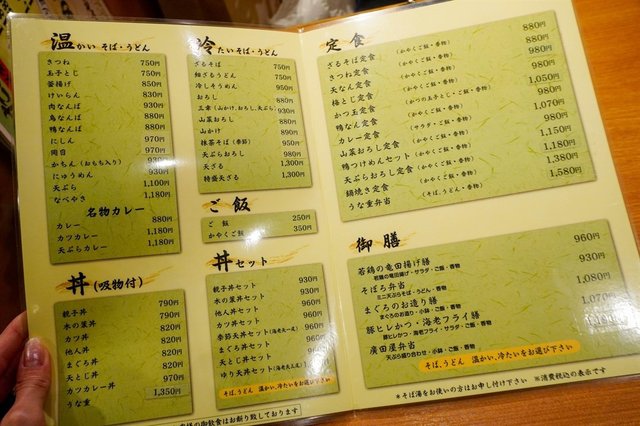 温かい そば・うどん
きつね 750円
玉子とじ 750円
釜揚げ 850円
けいらん 830円
肉なんば 930円
鳥なんば 880円
鴨なんば 880円
にしん 970円
岡目 930円
かちん(おもち入り) 930円
にゅうめん 930円
天ぷら 1,100円
なべやき 1,180円
名物カレー
カレー 880円
カツカレー 1,180円
天ぷらカレー 1,180円
丼(吸物付)
親子丼 790円
木の葉丼 790円
カツ丼 820円
他人丼 820円
まぐろ丼 820円
天とじ丼 970円
カツカレー丼 970円
うな重 1,350円
冷たい そば・うどん
ざるそば
細ざるうどん 750円
冷しそうめん 750円
おろし 950円
三家(山かけ、おろし、天ぷら)
山菜おろし
山かけ
抹茶そば(季節) 950円
天ぷらおろし 980円
天ざる 1,300円
特盛天ざる 1,300円
ご飯
ご飯 250円
かやくご飯 350円
丼セット
親子丼セット 930円
木の葉丼セット 930円
他人丼セット 960円
カツ丼セット 960円
季節天丼セット(海老天一尾) 960円
まぐろ丼セット 960円
天とじ丼セット
ゆり天丼セット(海老天二尾)
そば、うどん 温かい、冷たいをお選び下さい
定食
ざるそば定食 (かやくご飯・香物) 880円
きつね定食 (かやくご飯・香物) 880円
天なん定食 (かやくご飯・香物) 980円
梅とじ定食 (かやくご飯・香物) 980円
かつ玉定食 (かつの玉子とじ・ご飯・香物) 1,050円
鴨なん定食 (かやくご飯・香物) 980円
カレー定食 (サラダ・ご飯・香物) 1,070円
山菜おろし定食 (かやくご飯・香物) 980円
鴨つけめんセット (かやくご飯・香物) 1,150円
天ぷらおろし定食 (かやくご飯・香物) 1,180円
鍋焼き定食 (かやくご飯・香物) 1,380円
うな重弁当 (そば、うどん・香物) 1,580円
御膳
若鶏の竜田揚げ膳 960円
若鶏の竜田揚・サラダ・ご飯・香物
そぼろ弁当 930円
ミニ天ぷらそば、うどん・香物
まぐろのお造り膳 1,080円
まぐろのお造り・小鉢・ご飯・香物
豚ヒレかつ・海老フライ膳 1,070円
豚ヒレかつ・海老フライ・サラダ・ご飯・香物
廣田屋弁当
天ぷら盛り合わせ・小鉢・ご飯・香物
そば、うどん 温かい、冷たいをお選び下さい
＊そば湯をお使いの方はお申し付け下さい ＊消費税込の表示です